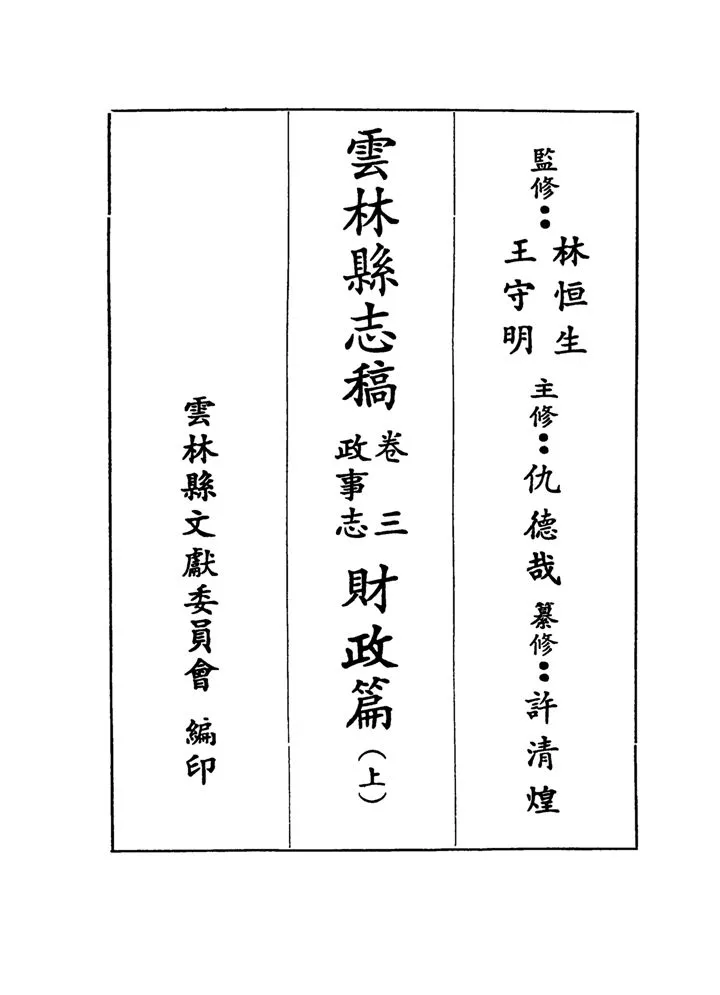 監修：林恒生
王守明
主修：仇德哉
纂修：許清煌
雲林縣志稿
卷三
政事志
財政篇（上）
雲林縣文獻委員會 編印